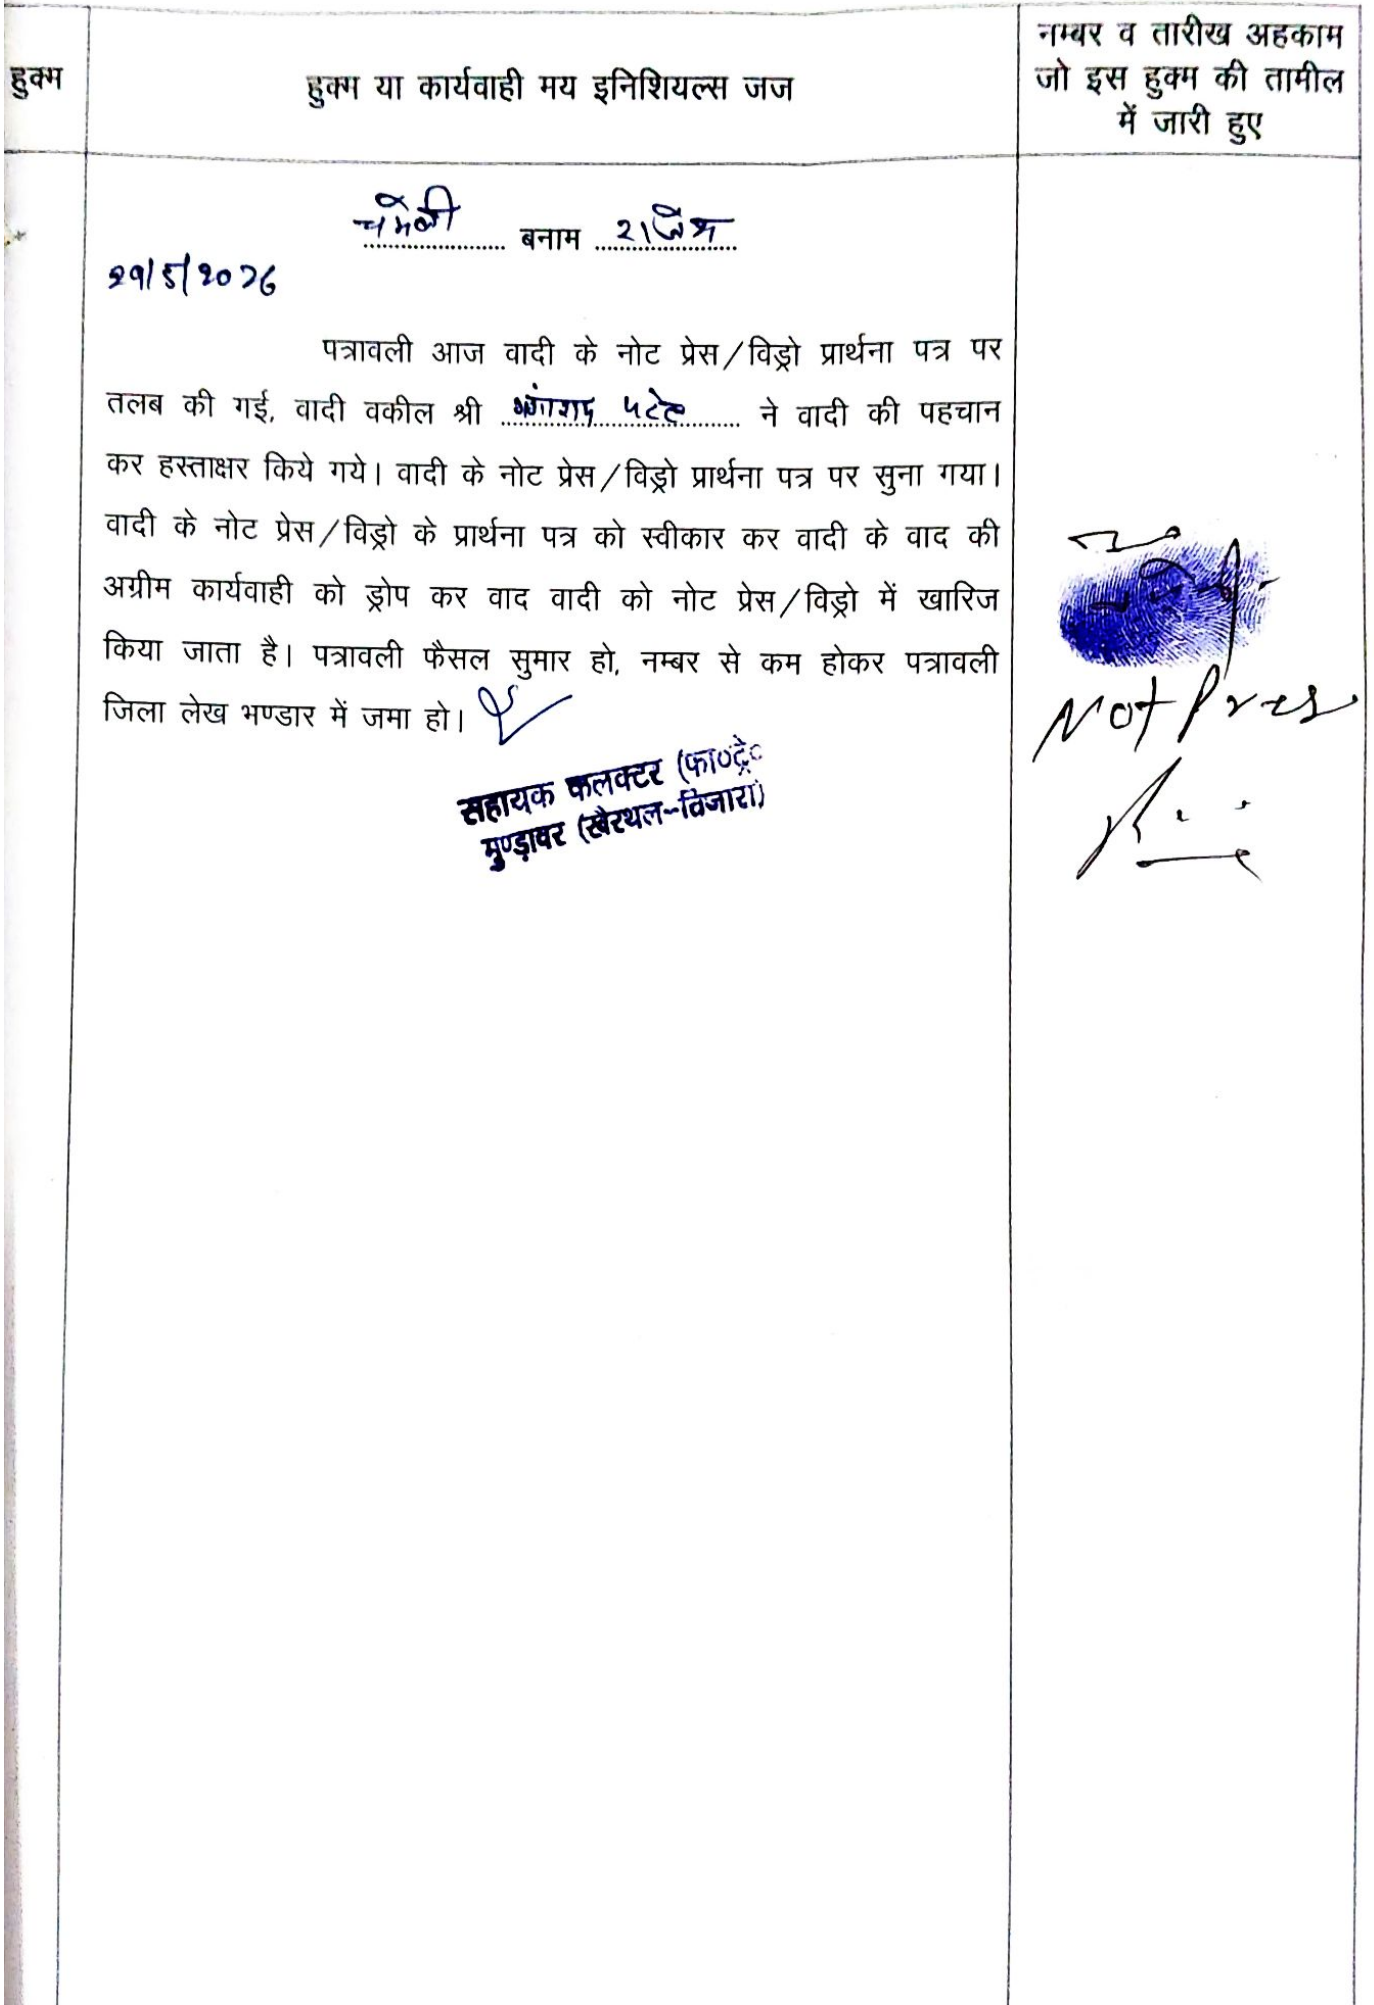 हुक्म
हुक्म या कार्यवाही मय इनिशियल्स जज
नम्बर व तारीख अहकाम
जो इस हुक्म की तामील
में जारी हुए
चमेली बनाम राजेश
29/5/2026
पत्रावली आज वादी के नोट प्रेस/विड्रो प्रार्थना पत्र पर
तलब की गई, वादी वकील श्री पटेल ने वादी की पहचान
कर हस्ताक्षर किये गये। वादी के नोट प्रेस/विड्रो प्रार्थना पत्र पर सुना गया।
वादी के नोट प्रेस/विड्रो के प्रार्थना पत्र को स्वीकार कर वादी के वाद की
अग्रीम कार्यवाही को ड्रोप कर वाद वादी को नोट प्रेस/विड्रो में खारिज
किया जाता है। पत्रावली फैसल सुमार हो, नम्बर से कम होकर पत्रावली
जिला लेख भण्डार में जमा हो।
सहायक कलक्टर (फा०ट्रे०
मुण्डावर (खैरथल-तिजारा)
Not Press